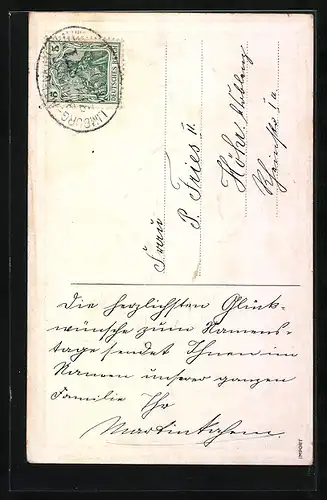 5 5
DEUTSCHES REICH
LIMBURG
Frau
P. Fries II.
Höhr
Rheinstr.
Die herzlichsten Glück-
wünsche zum Namens-
tage sendet Ihnen im
Namen unserer ganzen
Familie Ihr
IMPORT